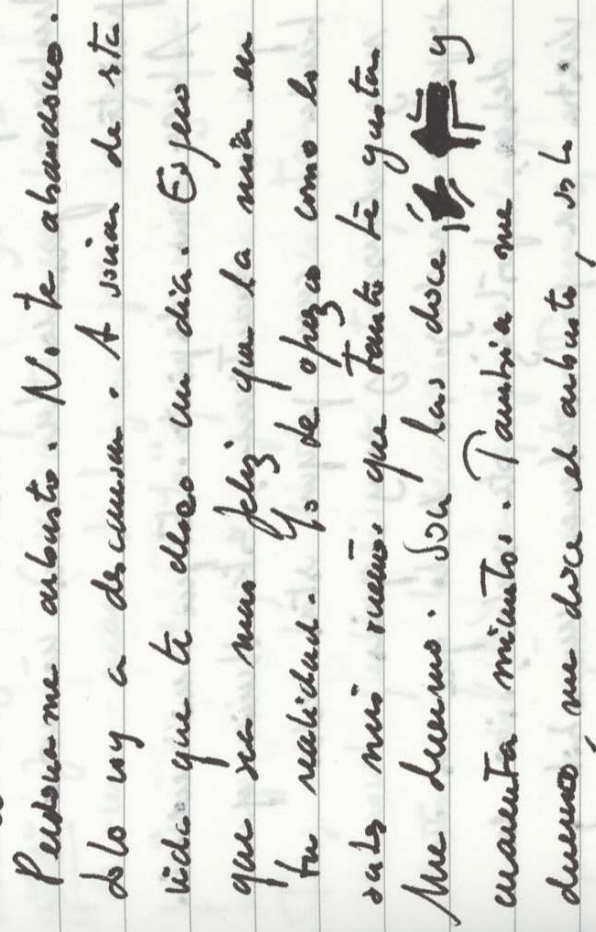 Perdoname arbusto. No te abandono.
Solo voy a descansar. A soñar de esta
vida que te deseo un dia. Espero
que sea mas feliz que la mia en
tu realidad. Yo te ofrezco como lo
sabes mis sueños que tanto te gustan
Me duermo. Son las doce y
cuarenta minutos. Tambien me
duermo, me dice el arbusto,